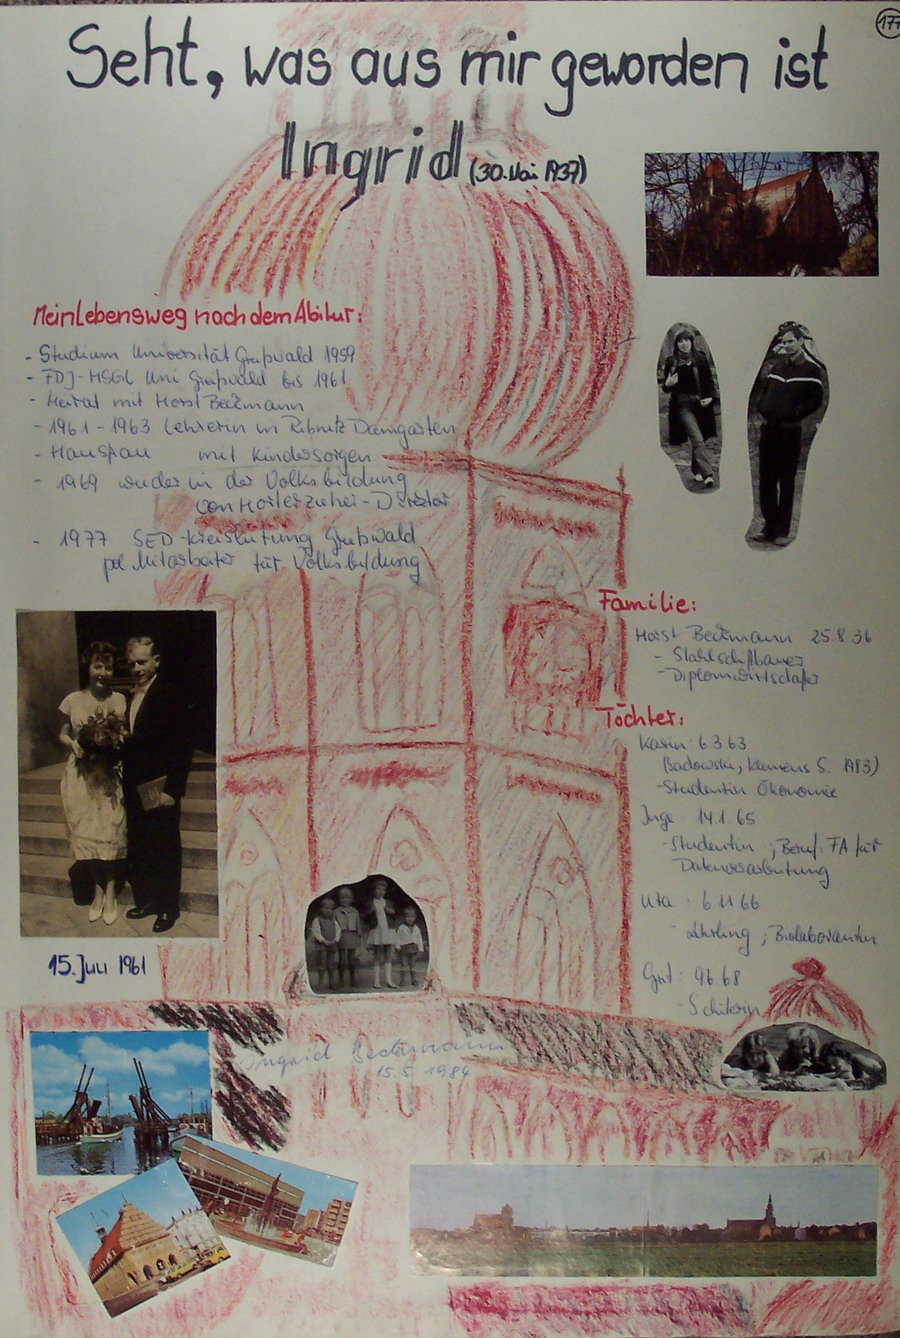 177
Seht, was aus mir geworden ist
Ingrid (30. Mai 1937)
Mein Lebensweg nach dem Abitur:
- Studium Universität Greifswald 1959
- FDJ-HSGL Uni Greifswald bis 1961
- Heirat mit Horst Beckmann
- 1961 - 1963 Lehrerin in Ribnitz Damgarten
- Hausfrau mit Kindersorgen
- 1969 wieder in der Volksbildung
von Horterzieher - Direktor
- 1977 SED-Kreisleitung Greifswald
pol Mitarbeiter für Volksbildung
Familie:
Horst Beckmann 25.8.36
- Stahlschiffbauer
- Diplomwirtschafter
Töchter:
Karin: 6.3.63
1983)
- Studentin Ökonomie
Inge 14.1.65
- Studentin ; Beruf: FA für
Datenverarbeitung
Uta: 6.11.66
- Lehrling ; Biolaborantin
Grit: 9.6.68
- Schülerin
15. Juli 1961
Ingrid Beckmann
15.5.1984